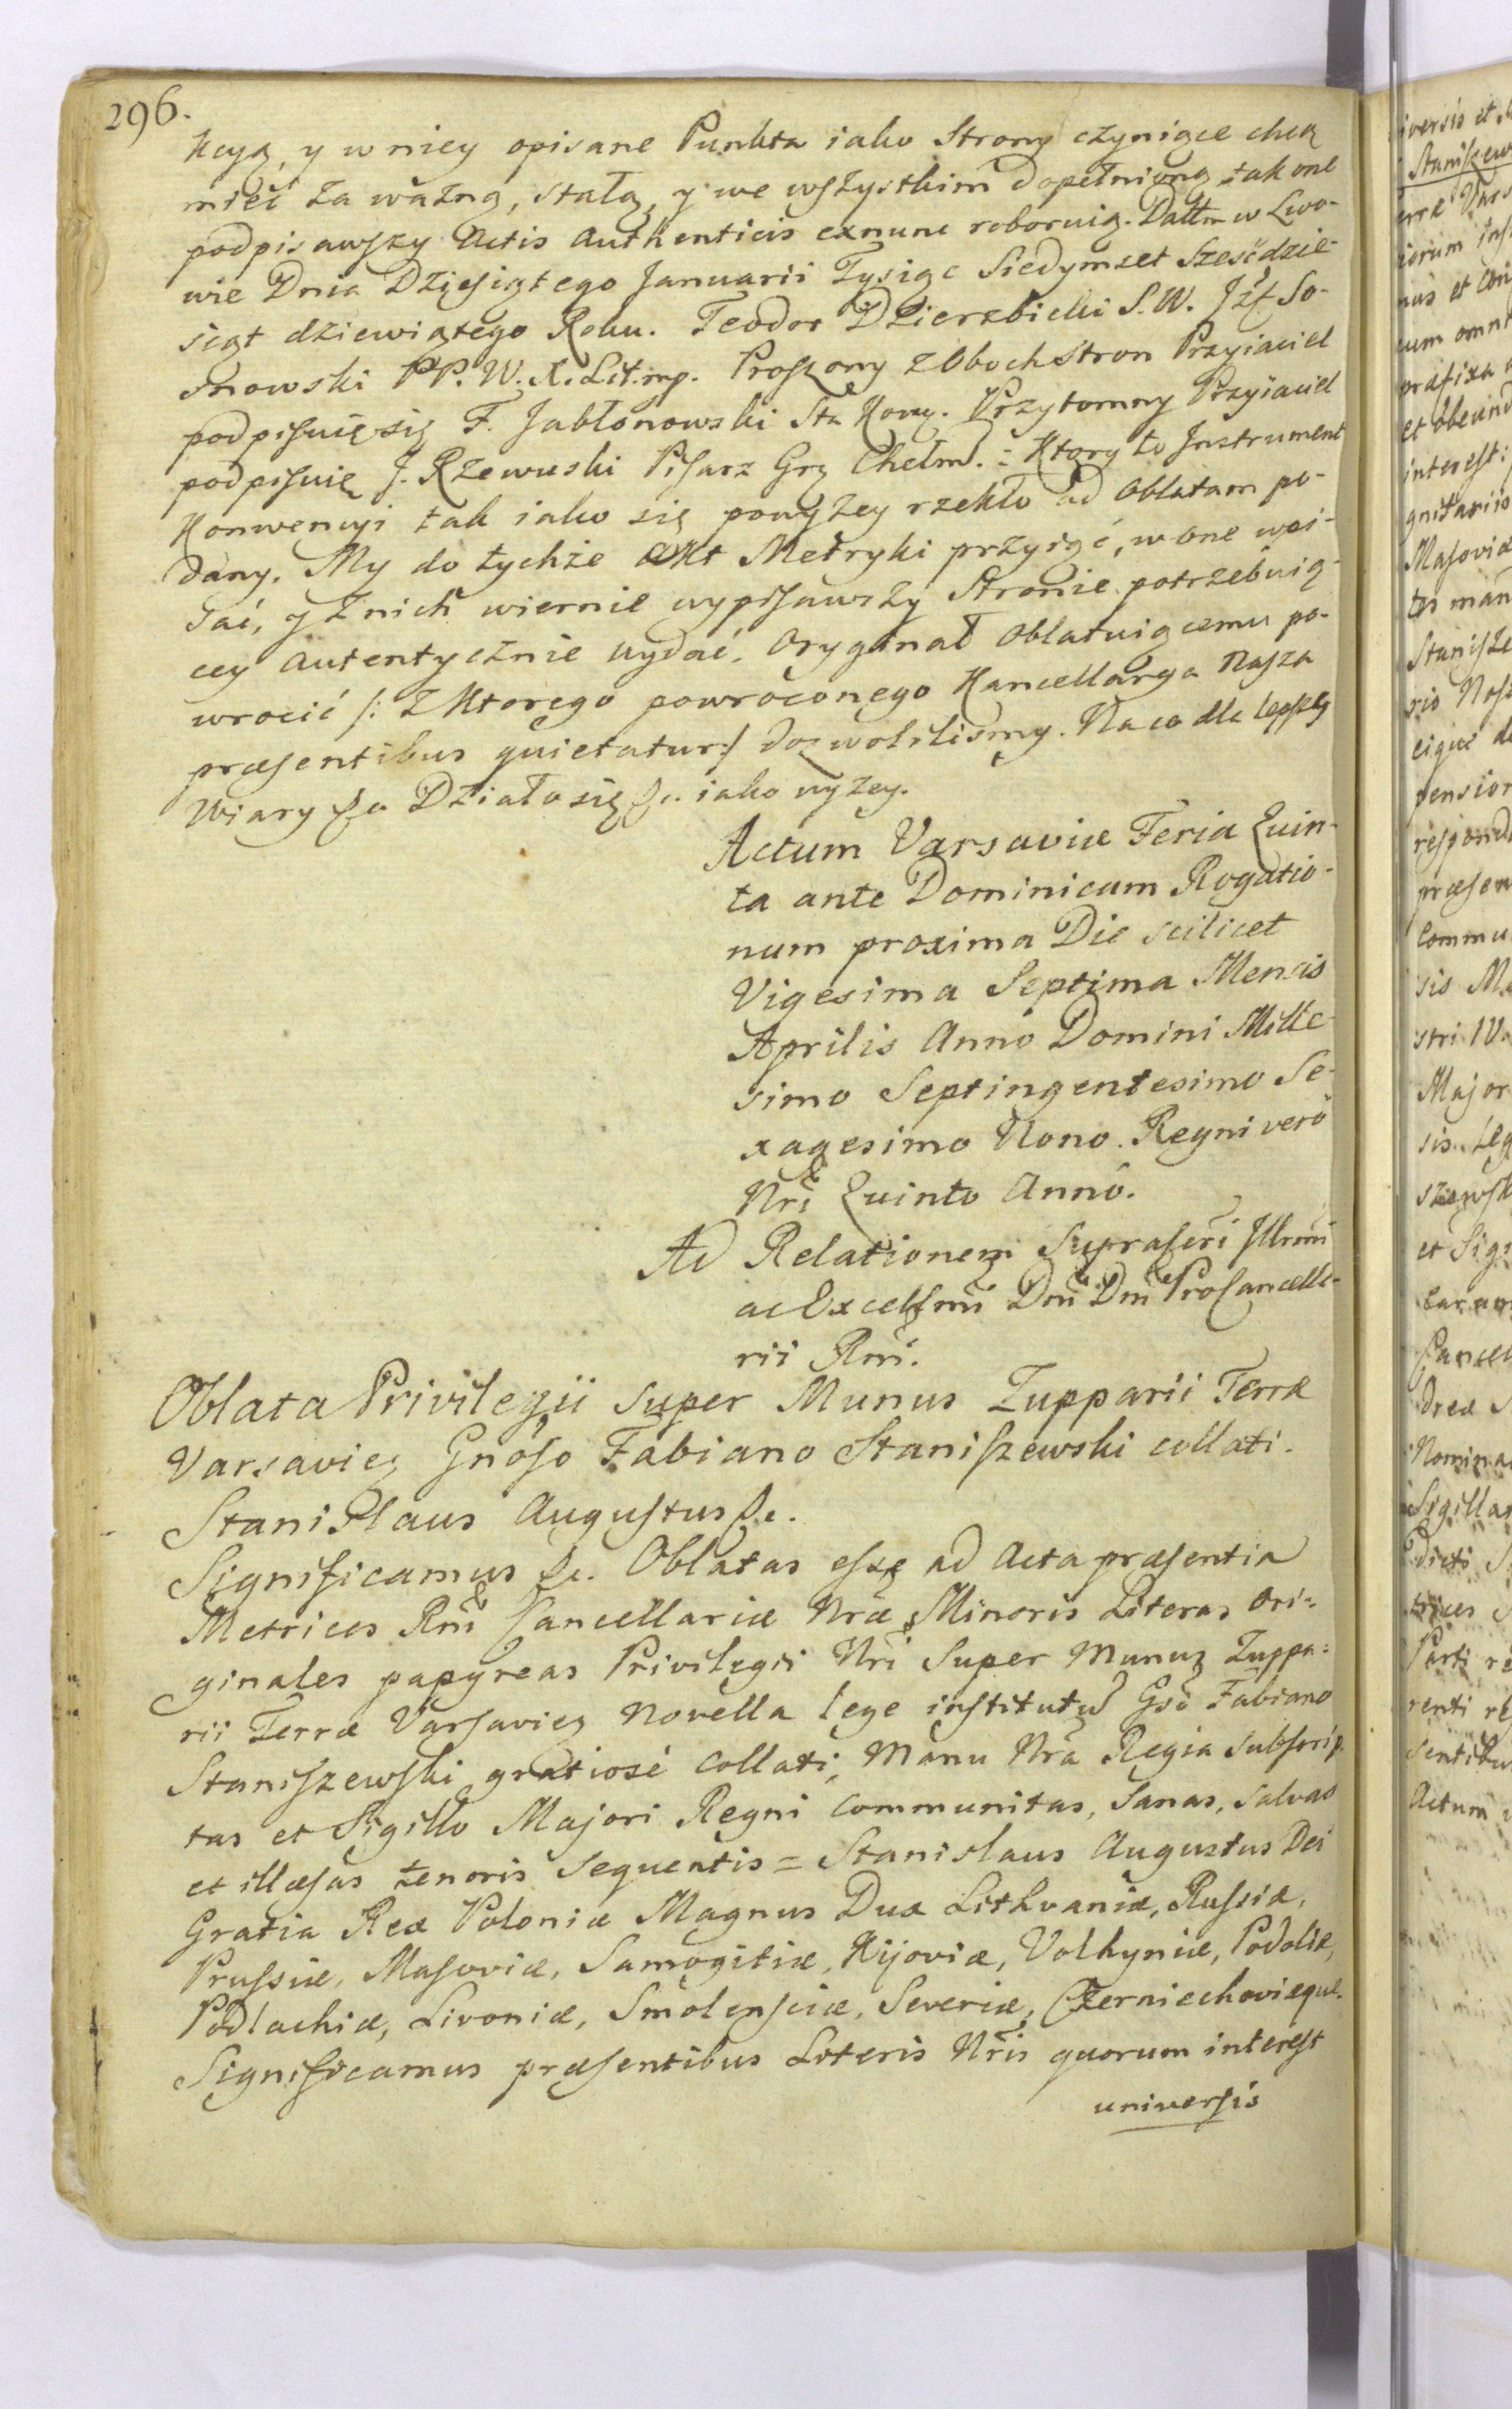 296.
kcyą, y w niey opisane Punkta iako Strony czyniące chcą
mieć za ważną, stałą, y we wszystkim dopełnioną tak one
podpisawszy Actis Authenticis exnunc roboruią. Dattm w Lwo-
wie Dnia Dziesiątego Januarii Tysiąc Siedymset Sześćdzie-
siąt dziewiątego Roku. Teodor Dzierzbicki S.W. Józf So-
snowski PP. W. X. Lit. mp. Proszony z Oboch Stron Przyiaciel
podpisuię się F. Jabłonowski Sta Kow. Przytomny Przyiaciel
podpisuię J. Rzewuski Pisarz Grż Chełm. = Ktory to Instrument
Konwencyi tak iako się powyżey rzekło ad Oblatam po-
dany. My do tychże Akt Metryki przyiąć, w one wpi-
sać, y z nich wiernie wypisawszy Stronie potrzebuią-
cey autentycznie wydać. Oryginał Oblatuiącemu po-
wrocić /: z Ktorego powroconego Kancellarya Nasza
præsentibus quietatur :/ dozwoliliśmy. Na co dla lepszey
Wiary &c Działo się &c. iako wyżey.
Actum Varsaviæ Feria Quin-
ta ante Dominicam Rogatio-
num proxima Die scilicet
Vigesima Septima Mensis
Aprilis Anno Domini Mille-
simo Septingentesimo Se-
xagesimo Nono. Regni verò
Nri Quinto Annó.
Ad Relationem Suprascri Illrmi
ac Excellmi Dni Dni ProCancella-
rii Rni.
Oblata Privilegii super Munus Zupparii Terræ
Varsavieɜ Gnoso Fabiano Staniszewski collati.
Stanislaus Augustus &c.
Significamus &c. Oblatas esse ad Acta præsentia
Metrices Rni Cancellariæ Nræ Minoris Literas Ori=
ginales papyreas Privilegii Nri Super Munus Zuppa=
rii Terræ Varsavieɜ Novella lege institutu Gso Fabiano
Staniszewski gratiosè Collati, Manu Nra Regia subscrip-
tas et Sigillo Majori Regni Communitas, Sanas, Salvas
et illæsas tenoris Sequentis = Stanislaus Augustus Dei
Gratia Rex Poloniæ Magnus Dux Lithvaniæ, Russiæ,
Prussiæ, Masoviæ, Samogitiæ, Kijoviæ, Volhyniæ, Podoliæ,
Podlachiæ, Livoniæ, Smolensciæ, Severiæ, Czerniechoviæque.
Significamus præsentibus Literis Nris quorum interest
universis